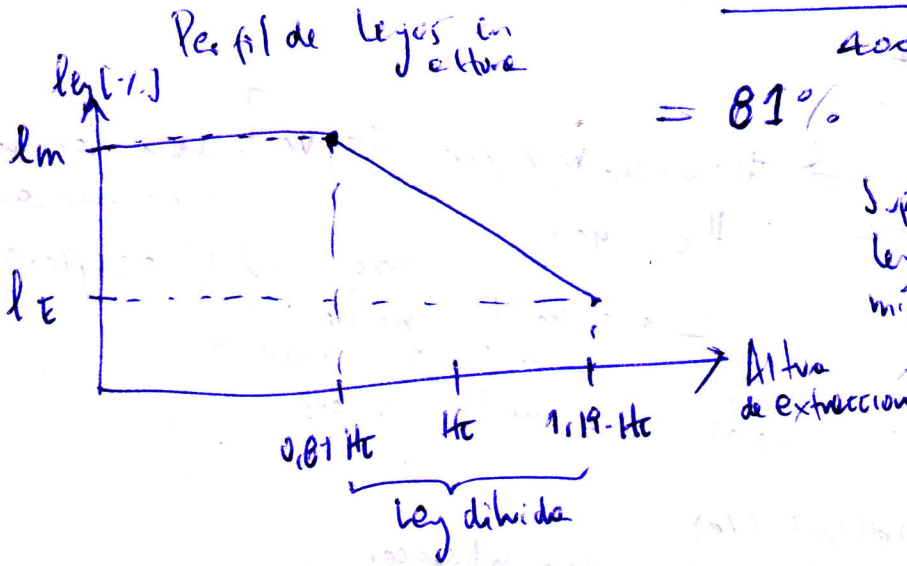 Perfil de Leyes en
altura
ley [%]
400
= 81%
lm
lE
Altura
de extracción
0,81 Ht
Ht
1,19·Ht
Ley diluida